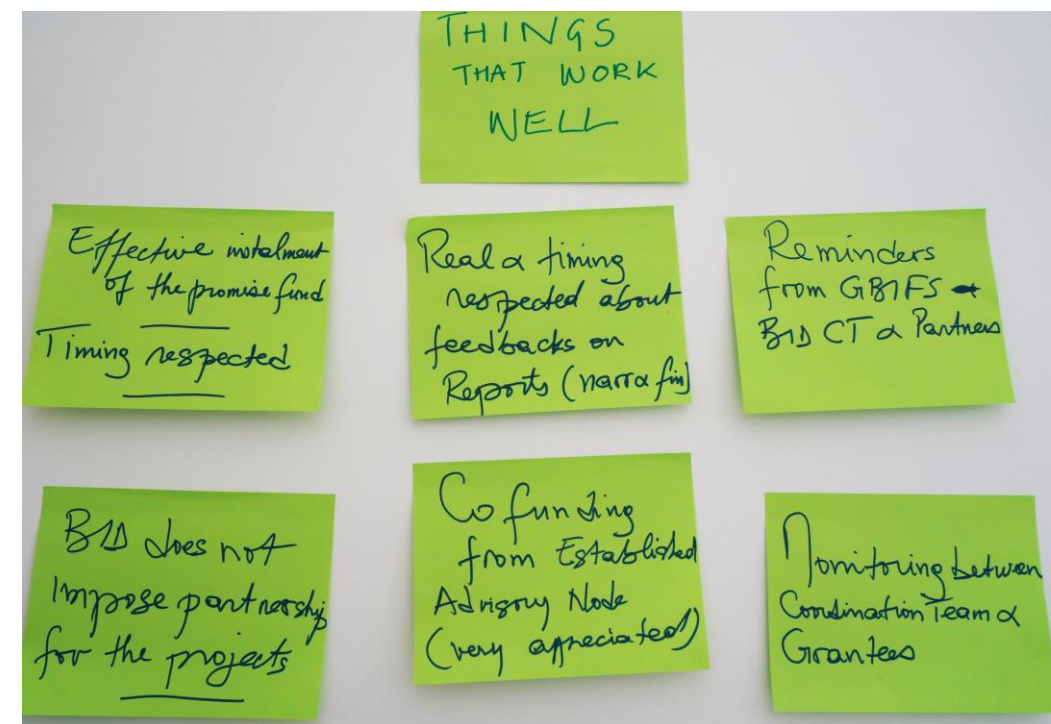 THINGS
THAT WORK
WELL
Effective instalment
of the promise fund
Timing respected
Real & timing
respected about
feedbacks on
Reports (narr & fin)
Reminders
from GBIFS
BID CT & Partners
BID does not
Impose partnership
for the projects
Cofunding
from Established
Advisory Node
(very appreciated)
Monitoring between
Coordination Team &
Grantees